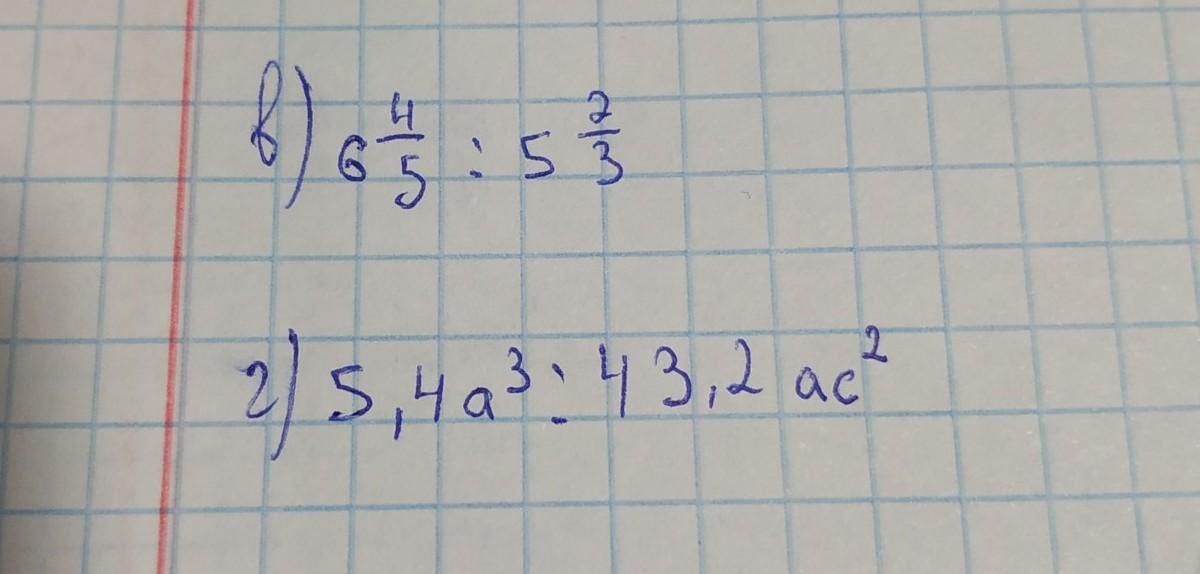 в) 6 4/5 : 5 2/3
г) 5,4a³ : 43,2 ac²